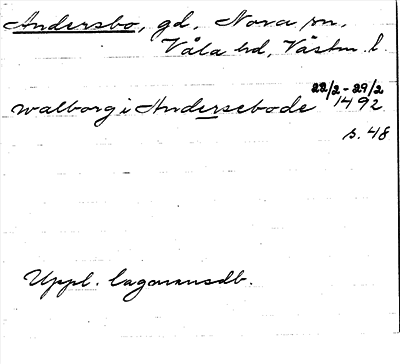 Andersbo, gd, Nora sn,
Våla hd, Västm. l.
walborg i Andersebode 22/2 - 29/2 1492
s. 48
Uppl. lagmansdb.